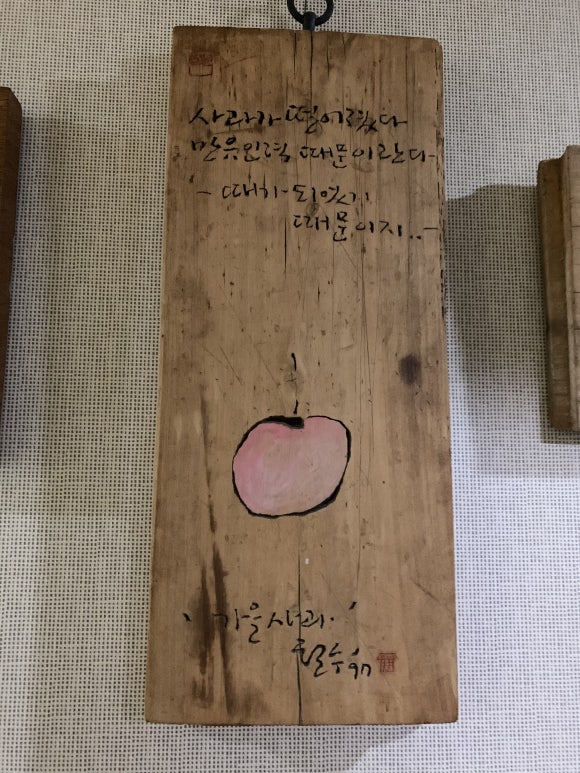 사과가 떨어졌다
만유인력 때문이란다
- 때가 되었기
때문이지..-
'가을사과.'
철수 '97